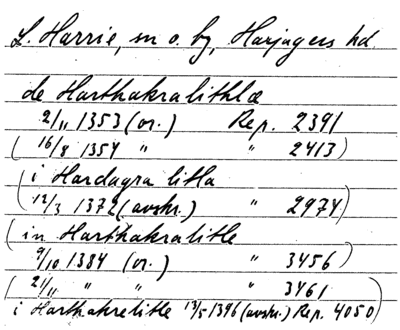 L. Harrie, sn o. by, Harjagers hd
de Harthakralithlæ
2/11 1353 (or.) Rep. 2391
( 16/8 1354 " " 2413 )
( i Hardagra litla
12/3 1372 (avskr.) " 2974 )
( in Harthakralitle
9/10 1384 (or.) " 3456 )
( 21/11 " " " 3461 )
i Harthakrelitle 13/5 1396 (avskr.) Rep. 4050 )